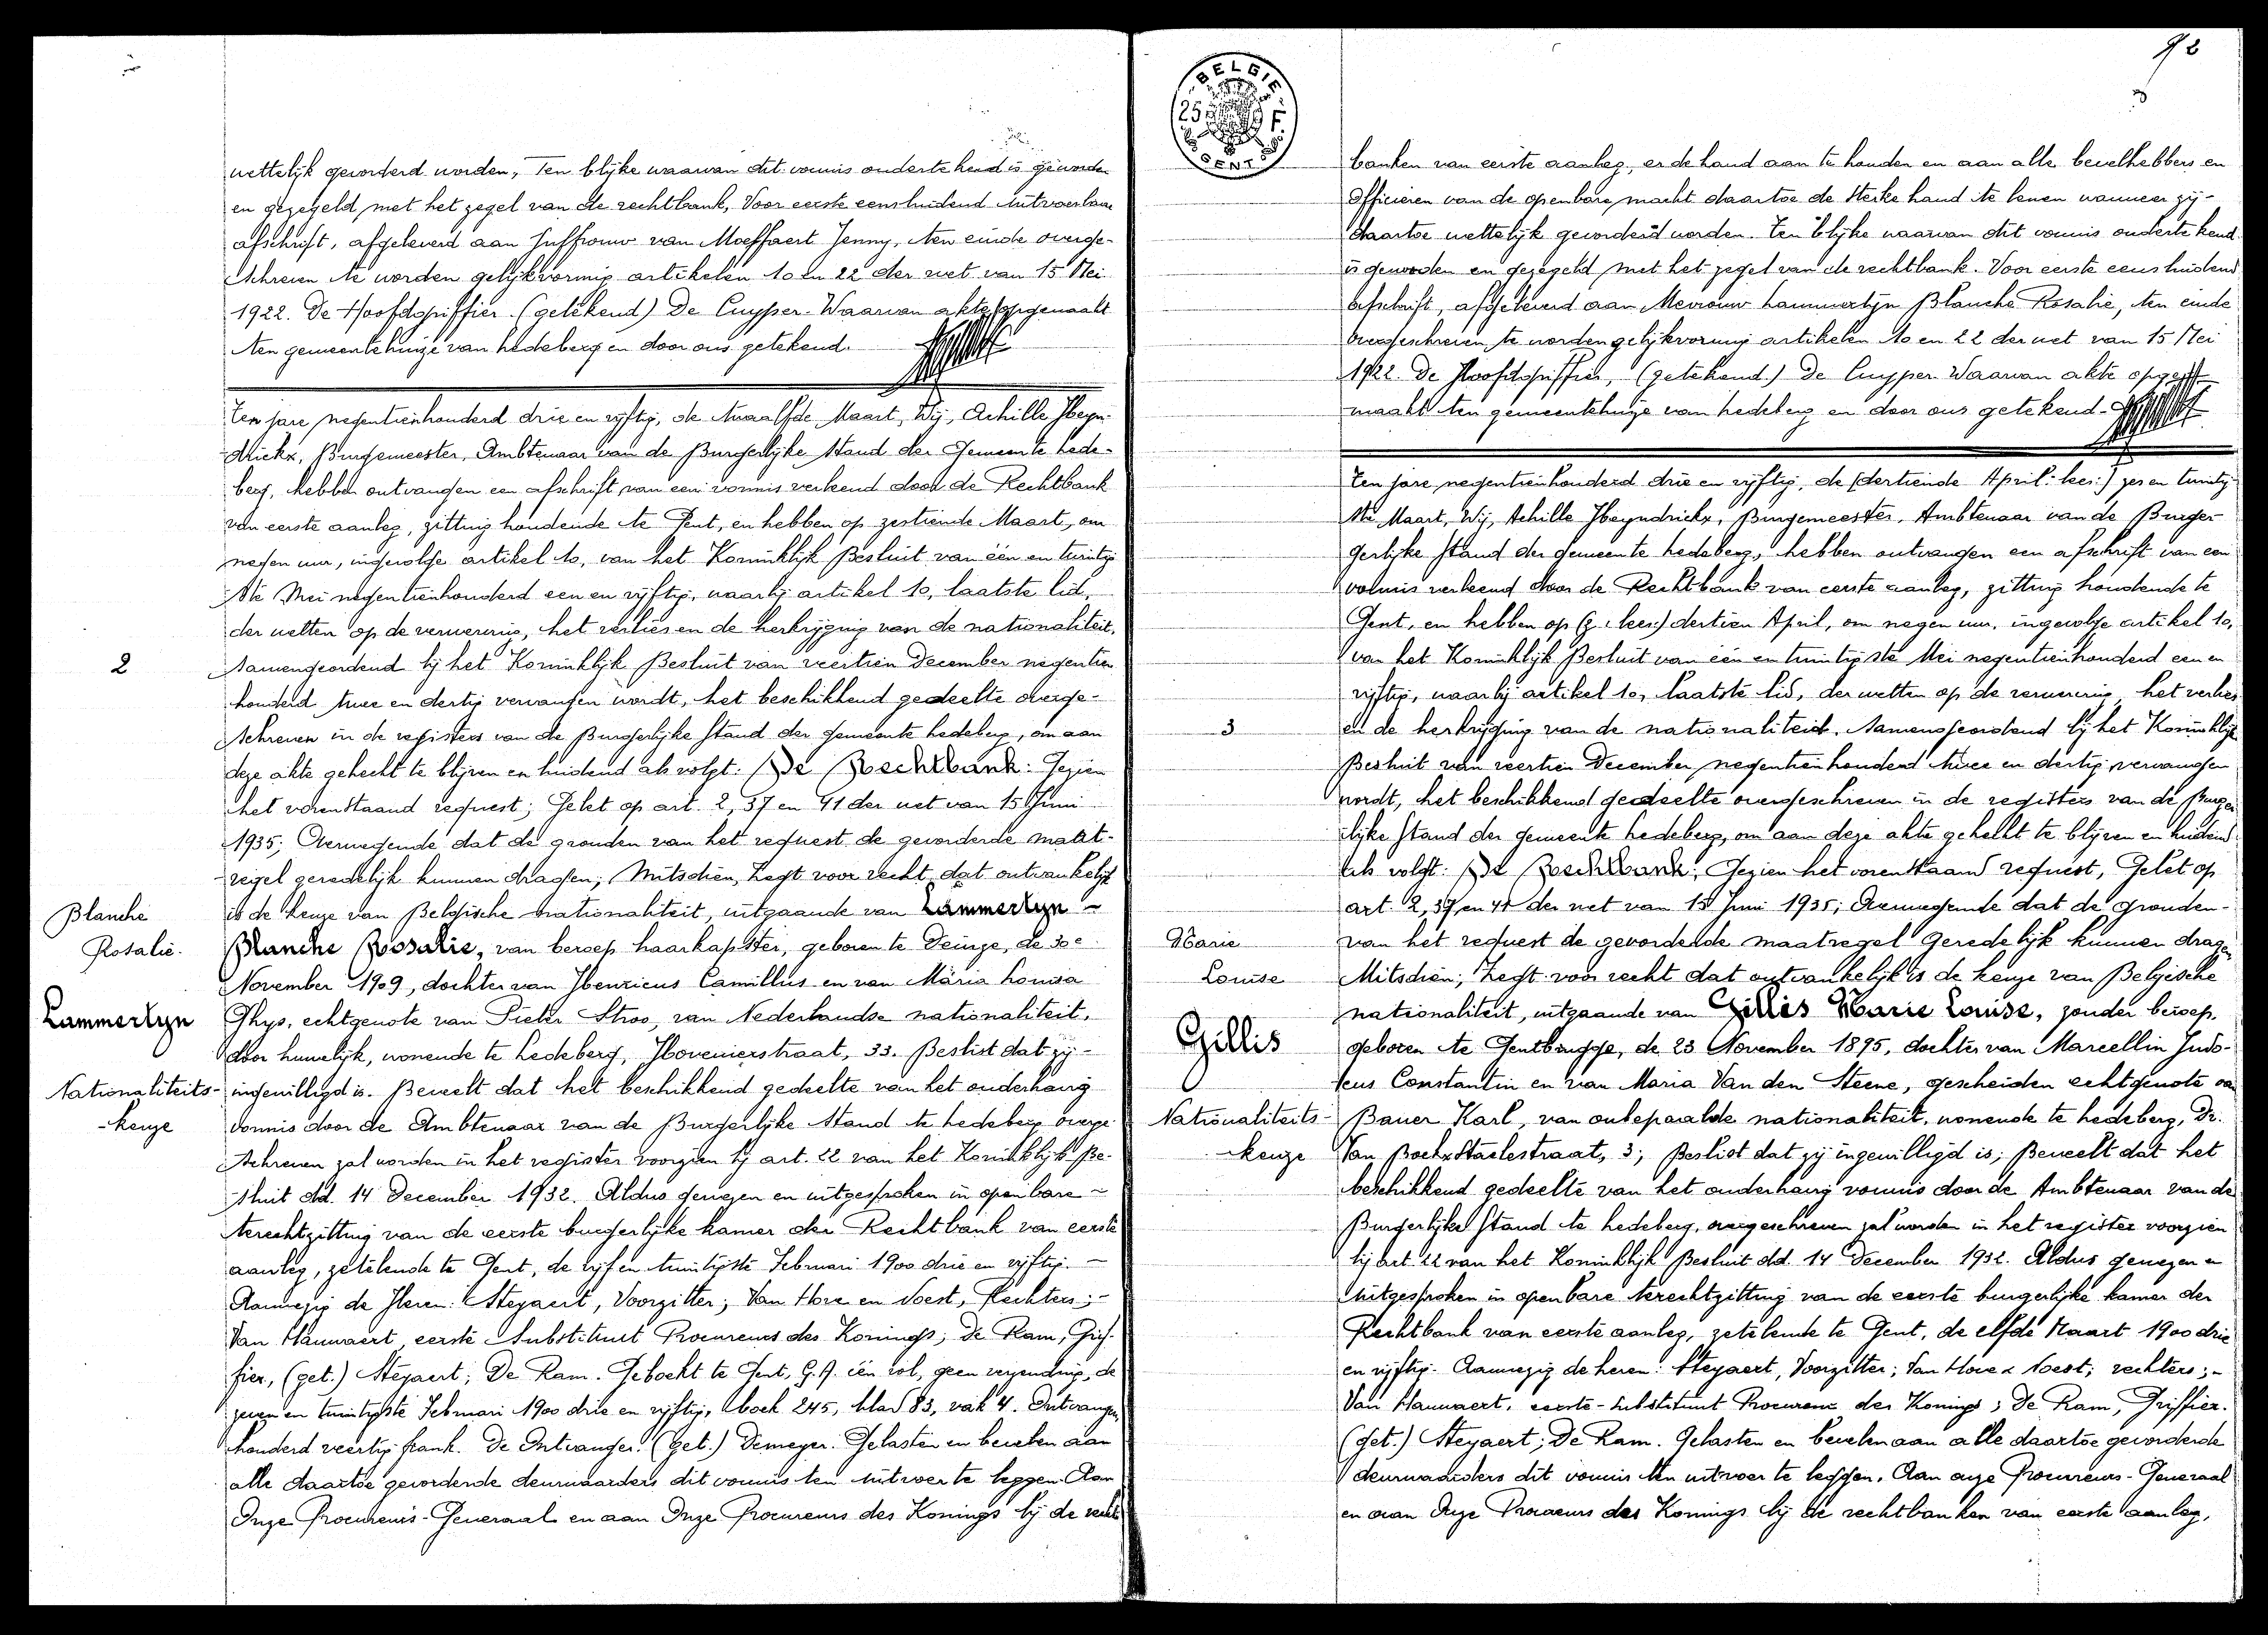 wettelijk gevorderd worden, Ten blijke waarvan dit vonnis ondertekend is geworden
en gezegeld met het zegel van de rechtbank, Voor eerste eensluidend uitvoerbaar
afschrift, afgeleverd aan Juffrouw van Moeffaert Jenny, ten einde overge-
schreven te worden gelijkvormig artikelen 10 en 22 der wet van 15 Mei
1922. De Hoofdgriffier. (getekend) De Cuyper. Waarvan akte opgemaakt
ten gemeentehuize van Ledeberg en door ons getekend.
Ten jare negentienhonderd drie en vijftig, de twaalfde Maart, Wij, Achille Heyn-
drickx, Burgemeester, Ambtenaar van de Burgerlijke Stand der Gemeente Lede-
berg, hebben ontvangen een afschrift van een vonnis verleend door de Rechtbank
van eerste aanleg, zitting houdende te Gent, en hebben op zestiende Maart, om
negen uur, ingevolge artikel 10, van het Koninklijk Besluit van één en twintig-
ste Mei negentienhonderd een en vijftig, waarbij artikel 10, laatste lid,
der wetten op de verwerving, het verlies en de herkrijging van de nationaliteit,
2
samengeordend bij het Koninklijk Besluit van veertien December negentien
honderd twee en dertig vervangen wordt, het beschikkend gedeelte overge-
schreven in de registers van de Burgerlijke Stand der Gemeente Ledeberg, om aan
deze akte gehecht te blijven en luidend als volgt: De Rechtbank: Gezien
het vorenstaand request; Gelet op art. 2, 37 en 41 der wet van 15 Juni
1935; Overwegende dat de gronden van het request de gevorderde maat-
regel geredelijk kunnen dragen; Mitsdien, Zegt voor recht dat ontvankelijk
Blanche
Rosalie.
Lammertyn
Nationaliteits-
-keuze
is de keuze van Belgische nationaliteit, uitgaande van Lammertyn
Blanche Rosalie, van beroep haarkapster, geboren te Deinze, de 30e
November 1909, dochter van Henricus Camillus en van Maria Louisa
Thys, echtgenote van Pieter Stroo, van Nederlandse nationaliteit,
door huwelijk, wonende te Ledeberg, Hovenierstraat, 33. Beslist dat zij
ingewilligd is. Beveelt dat het beschikkend gedeelte van het onderhavig
vonnis door de Ambtenaar van de Burgerlijke Stand te Ledeberg overge-
schreven zal worden in het register voorzien bij art. 22 van het Koninklijk Be-
sluit dd. 14 December 1932. Aldus gewezen en uitgesproken in openbare
terechtzitting van de eerste burgerlijke kamer der Rechtbank van eerste
aanleg, zetelende te Gent, de vijf en twintigste Februari 1900 drie en vijftig.
Aanwezig de Heren: Steyaert, Voorzitter; Van Hove en Soest, Rechters;
Van Hauwaert, eerste Substituut Procureurs des Konings; De Ram, Grif-
fier, (get.) Steyaert; De Ram. Geboekt te Gent, G.A. één rol, geen verzending, de
zeven en twintigste Februari 1900 drie en vijftig, boek 245, blad 83, vak 4. Ontvangen
honderd veertig frank. De Ontvanger. (get.) Demeyer. Gelasten en bevelen aan
alle daartoe gevorderde deurwaarders dit vonnis ten uitvoer te leggen. Aan
Onze Procureurs-Generaal en aan Onze Procureurs des Konings bij de recht-
BELGIE
25 F.
GENT
banken van eerste aanleg, er de hand aan te houden en aan alle bevelhebbers en
officieren van de openbare macht daartoe de sterke hand te lenen wanneer zij
daartoe wettelijk gevorderd worden. Ten blijke waarvan dit vonnis ondertekend
is geworden en gezegeld met het zegel van de rechtbank. Voor eerste eensluidend
afschrift, afgeleverd aan Mevrouw Lammertyn Blanche Rosalie, ten einde
overgeschreven te worden gelijkvormig artikelen 10 en 22 der wet van 15 Mei
1922. De Hoofdgriffier, (getekend) De Cuyper. Waarvan akte opge-
maakt ten gemeentehuize van Ledeberg en door ons getekend.
Ten jare negentienhonderd drie en vijftig, de (dertiende April: lees:) zes en twintig-
ste Maart, Wij, Achille Heyndrickx, Burgemeester, Ambtenaar van de Burger-
gerlijke Stand der Gemeente Ledeberg, hebben ontvangen een afschrift van een
vonnis verleend door de Rechtbank van eerste aanleg, zitting houdende te
Gent, en hebben op (z: lees:) dertien April, om negen uur, ingevolge artikel 10,
van het Koninklijk Besluit van één en twintigste Mei negentienhonderd een en
vijftig, waarbij artikel 10, laatste lid, der wetten op de verwerving, het verlies
3
en de herkrijging van de nationaliteit, samengeordend bij het Koninklijk
Besluit van veertien December negentienhonderd twee en dertig vervangen
wordt, het beschikkend gedeelte overgeschreven in de registers van de Burger-
lijke Stand der Gemeente Ledeberg, om aan deze akte gehecht te blijven en luidend
als volgt: De Rechtbank; Gezien het vorenstaand request, Gelet op
art. 2, 37 en 41 der wet van 15 Juni 1935; Overwegende dat de gronden
Marie
Louise
Gillis
Nationaliteits-
-keuze
van het request de gevorderde maatregel geredelijk kunnen dragen
Mitsdien; Zegt voor recht dat ontvankelijk is de keuze van Belgische
nationaliteit, uitgaande van Gillis Marie Louise, zonder beroep,
geboren te Gentbrugge, de 23 November 1895, dochter van Marcellin Judo-
cus Constantin en van Maria Van den Steene, gescheiden echtgenote van
Bauer Karl, van onbepaalde nationaliteit, wonende te Ledeberg, Dr.
Van Bockxstaelestraat, 3; Beslist dat zij ingewilligd is; Beveelt dat het
beschikkend gedeelte van het onderhavig vonnis door de Ambtenaar van de
Burgerlijke Stand te Ledeberg, overgeschreven zal worden in het register voorzien
bij art. 22 van het Koninklijk Besluit dd. 14 December 1932. Aldus gewezen en
uitgesproken in openbare terechtzitting van de eerste burgerlijke kamer der
Rechtbank van eerste aanleg, zetelende te Gent, de elfde Maart 1900 drie
en vijftig. Aanwezig de heren: Steyaert, Voorzitter; Van Hove & Soest; rechters;
Van Hauwaert, eerste-substituut Procureur des Konings; De Ram, Griffier.
(get.) Steyaert; De Ram. Gelasten en bevelen aan alle daartoe gevorderde
deurwaarders dit vonnis ten uitvoer te leggen. Aan onze Procureurs-Generaal
en aan Onze Procureurs des Konings bij de rechtbanken van eerste aanleg,